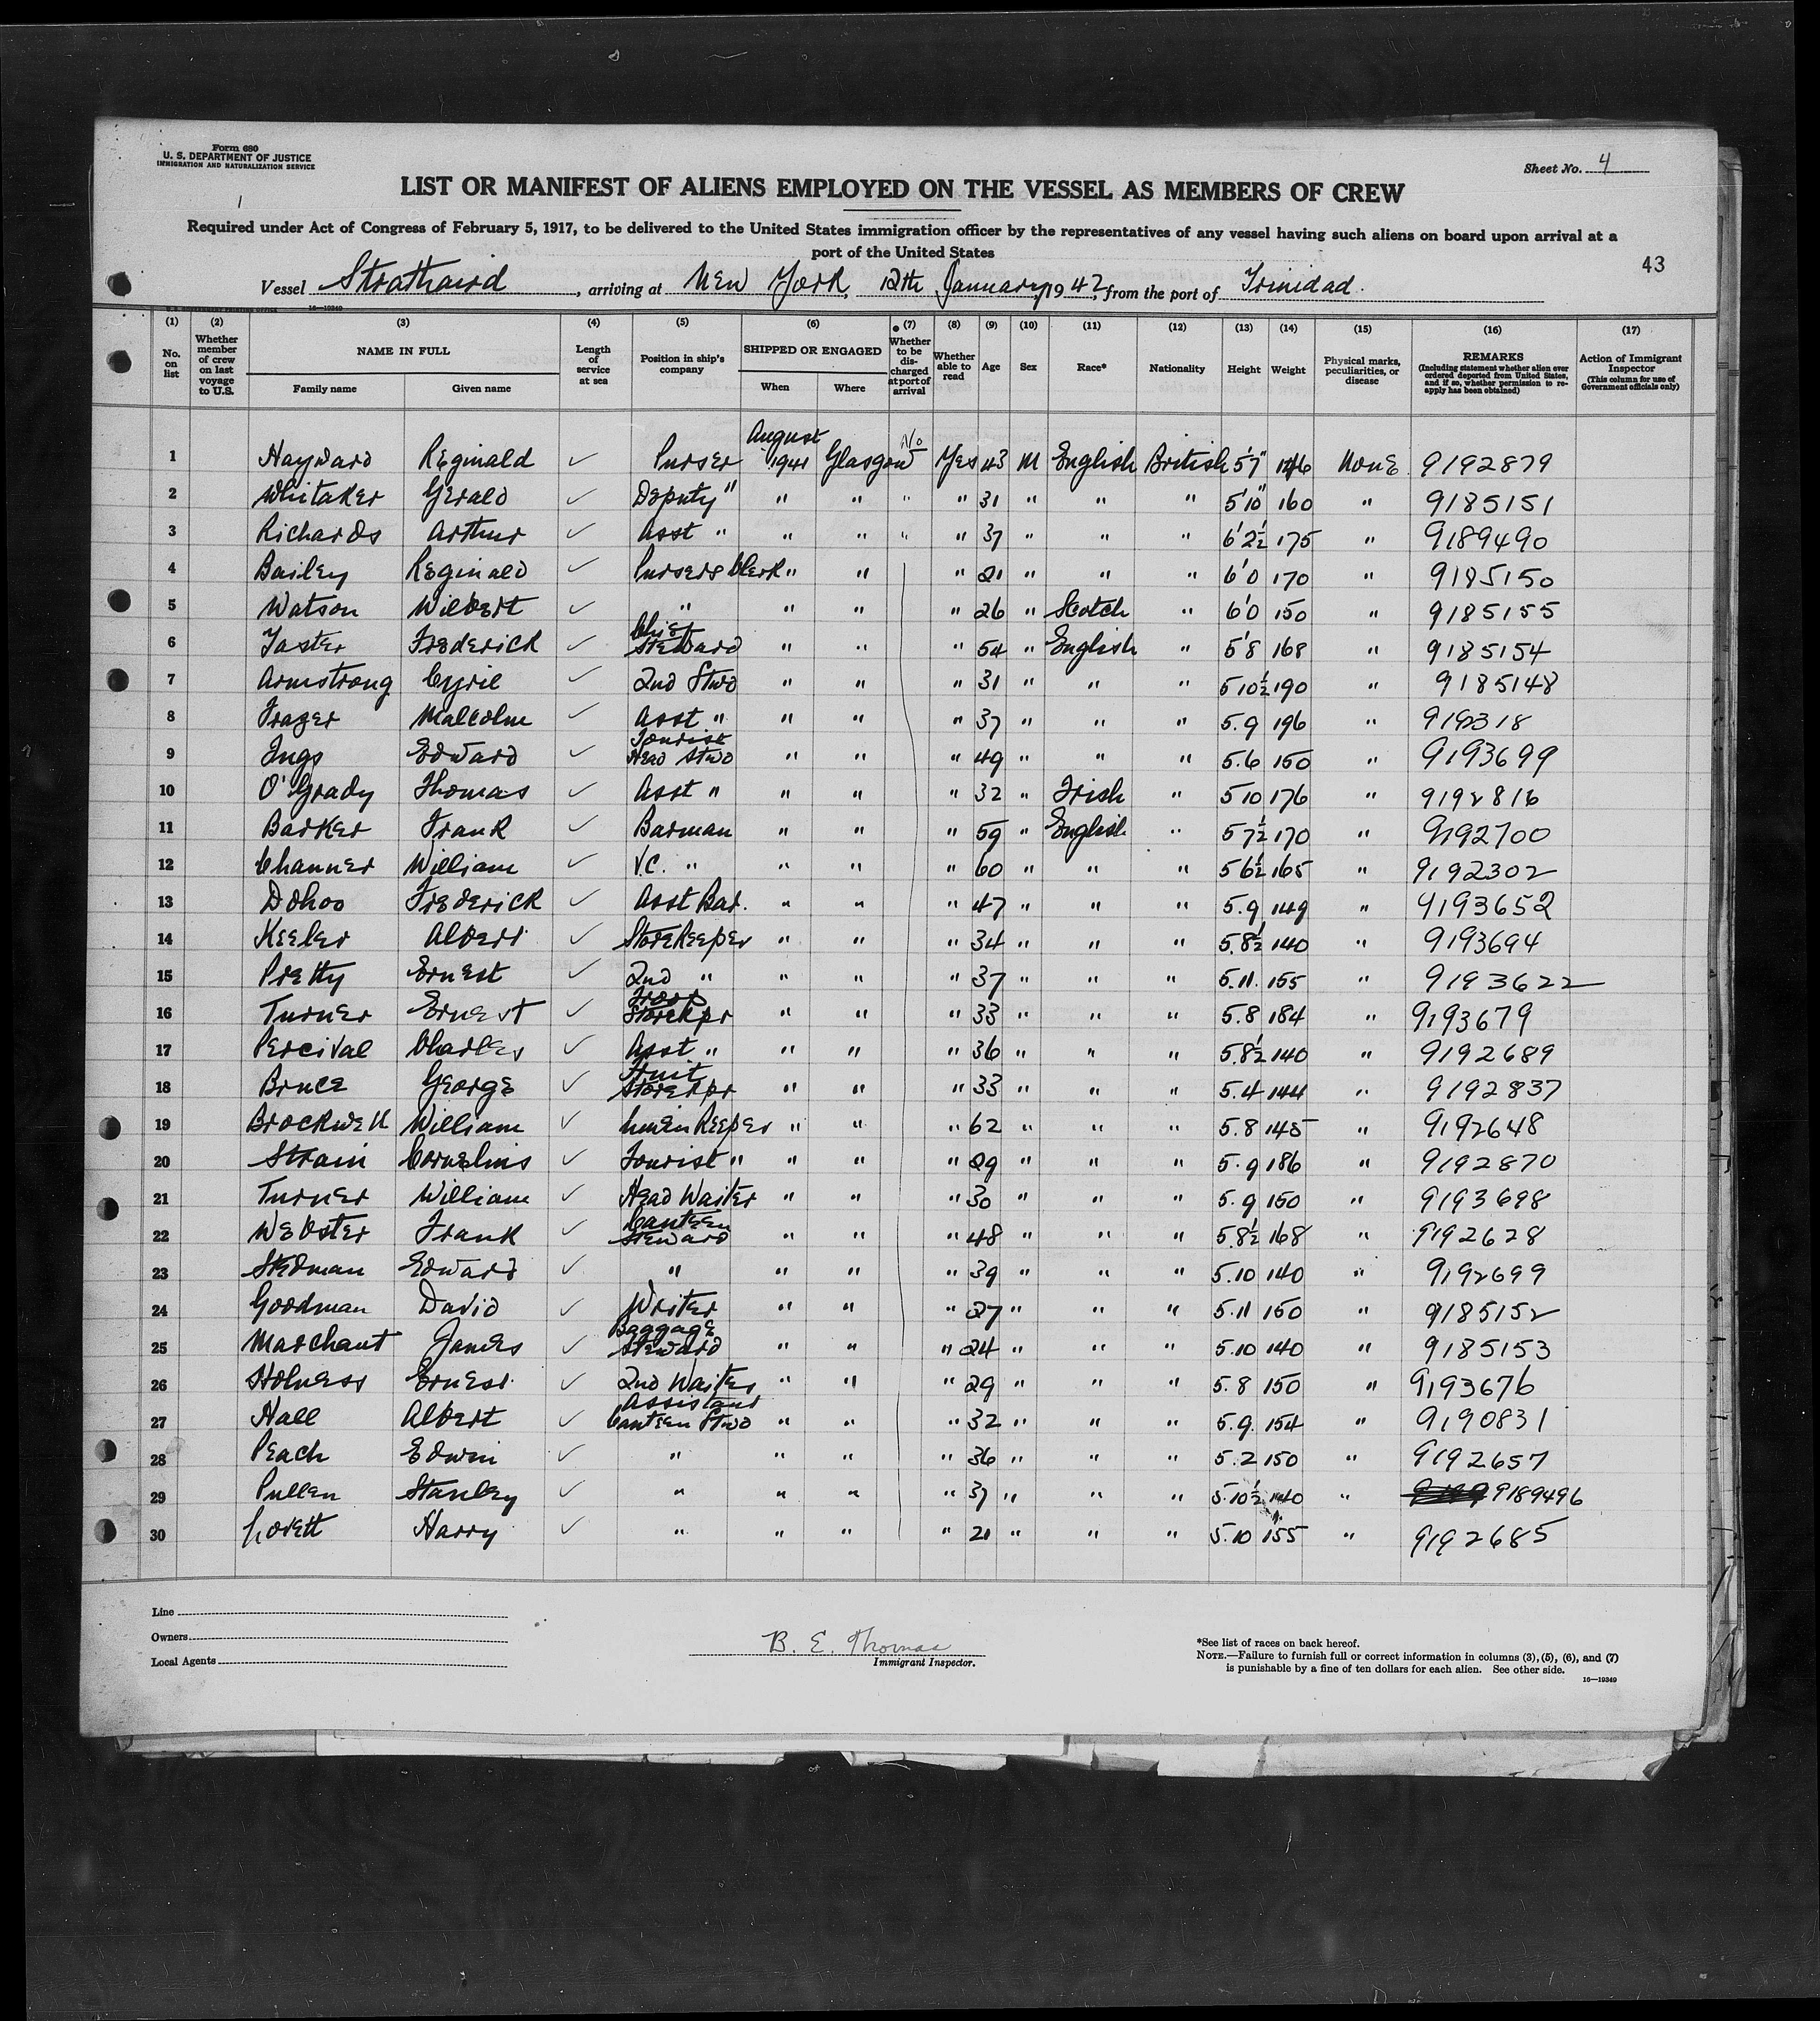 Form 680
U. S. DEPARTMENT OF JUSTICE
IMMIGRATION AND NATURALIZATION SERVICE
Sheet No. 4
LIST OR MANIFEST OF ALIENS EMPLOYED ON THE VESSEL AS MEMBERS OF CREW
Required under Act of Congress of February 5, 1917, to be delivered to the United States immigration officer by the representatives of any vessel having such aliens on board upon arrival at a
port of the United States
43
Vessel Strathaird, arriving at New York, 12th January, 1942, from the port of Trinidad.
16—19349
(1) (2) (3) (4) (5) (6) (7) (8) (9) (10) (11) (12) (13) (14) (15) (16) (17)
No. on list Whether member of crew on last voyage to U.S. NAME IN FULL Family name Given name Length of service at sea Position in ship's company SHIPPED OR ENGAGED When Where Whether to be discharged at port of arrival Whether able to read Age Sex Race* Nationality Height Weight Physical marks, peculiarities, or disease REMARKS (Including statement whether alien ever ordered deported from United States, and if so, whether permission to reapply has been obtained) Action of Immigrant Inspector (This column for use of Government officials only)
1 Hayward Reginald ✓ Purser August 1941 Glasgow No Yes 43 M English British 5'7" 146 None 9192879
2 Whitaker Gerald ✓ Deputy " " " " " 31 " " " 5'10" 160 " 9185151
3 Richards Arthur ✓ Asst " " " " " 37 " " " 6'2½ 175 " 9189490
4 Bailey Reginald ✓ Pursers Clerk " " " 21 " " " 6'0 170 " 9185150
5 Watson Wilbert ✓ " " " " 26 " Scotch " 6'0 150 " 9185155
6 Frederick ✓ Chief Steward " " " 54 " English " 5'8 168 " 9185154
7 Armstrong Cyril ✓ 2nd Stwd " " " 31 " " " 5 10½ 190 " 9185148
8 Frazer Malcolm ✓ Asst " " " " 37 " " " 5.9 196 "
9 Ings Edward ✓ Tourist Head Stwd " " " 49 " " " 5.6 150 " 9193699
10 O'Grady Thomas ✓ Asst " " " " 32 " Irish " 5 10 176 " 9192816
11 Barker Frank ✓ Barman " " " 59 " English " 5 7½ 170 " 9192700
12 Channer William ✓ V.C. " " " " 60 " " " 5 6½ 165 " 9192302
13 Dohoo Frederick ✓ Asst Bar. " " " 47 " " " 5.9 149 " 9193652
14 Keeler Albert ✓ Storekeeper " " " 34 " " " 5.8½ 140 " 9193694
15 Pretty Ernest ✓ 2nd " " " " 37 " " " 5.11. 155 " 9193622
16 Turner Ernest ✓ Troop Storekpr " " " 33 " " " 5.8 184 " 9193679
17 Percival Charles ✓ Asst " " " " 36 " " " 5.8½ 140 " 9192689
18 Bruce George ✓ Fruit Storekpr " " " 33 " " " 5.4 144 " 9192837
19 Brockwell William ✓ Linen Keeper " " " 62 " " " 5.8 145 " 9192648
20 Strain Cornelius ✓ Tourist " " " " 29 " " " 5.9 186 " 9192870
21 Turner William ✓ Head Waiter " " " 30 " " " 5.9 150 " 9193698
22 Webster Frank ✓ Canteen Steward " " " 48 " " " 5.8½ 168 " 9192628
23 Stedman Edward ✓ " " " " 39 " " " 5.10 140 " 9192699
24 Goodman David ✓ Writer " " " 27 " " " 5.11 150 " 9185152
25 Marchant James ✓ Baggage Steward " " " 24 " " " 5.10 140 " 9185153
26 Holness Ernest ✓ 2nd Waiter " " " 29 " " " 5.8 150 " 9193676
27 Hall Albert ✓ Assistant Canteen Stwd " " " 32 " " " 5.9. 154 " 9190831
28 Peach Edwin ✓ " " " " 36 " " " 5.2 150 " 9192657
29 Pullen Stanley ✓ " " " " 37 " " " 5.10½ 140 " 9189496
30 Lovett Harry ✓ " " " " 21 " " " 5.10 155 " 9192685
Line
Owners
Local Agents
B. E. Thomas
Immigrant Inspector.
*See list of races on back hereof.
NOTE.—Failure to furnish full or correct information in columns (3), (5), (6), and (7)
is punishable by a fine of ten dollars for each alien. See other side.
16—19349